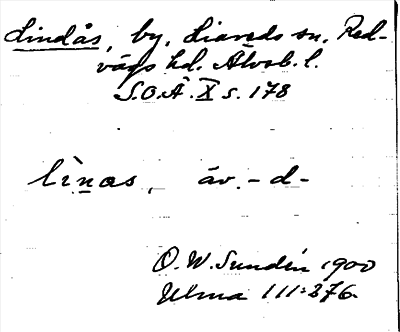 Lindås, by, Liareds sn, Red-
vägs hd. Älvsb. l.
S.O.Ä. X s. 178
lìnas, äv. -d-
O. W. Sundén 1900
Ulma 111:276.